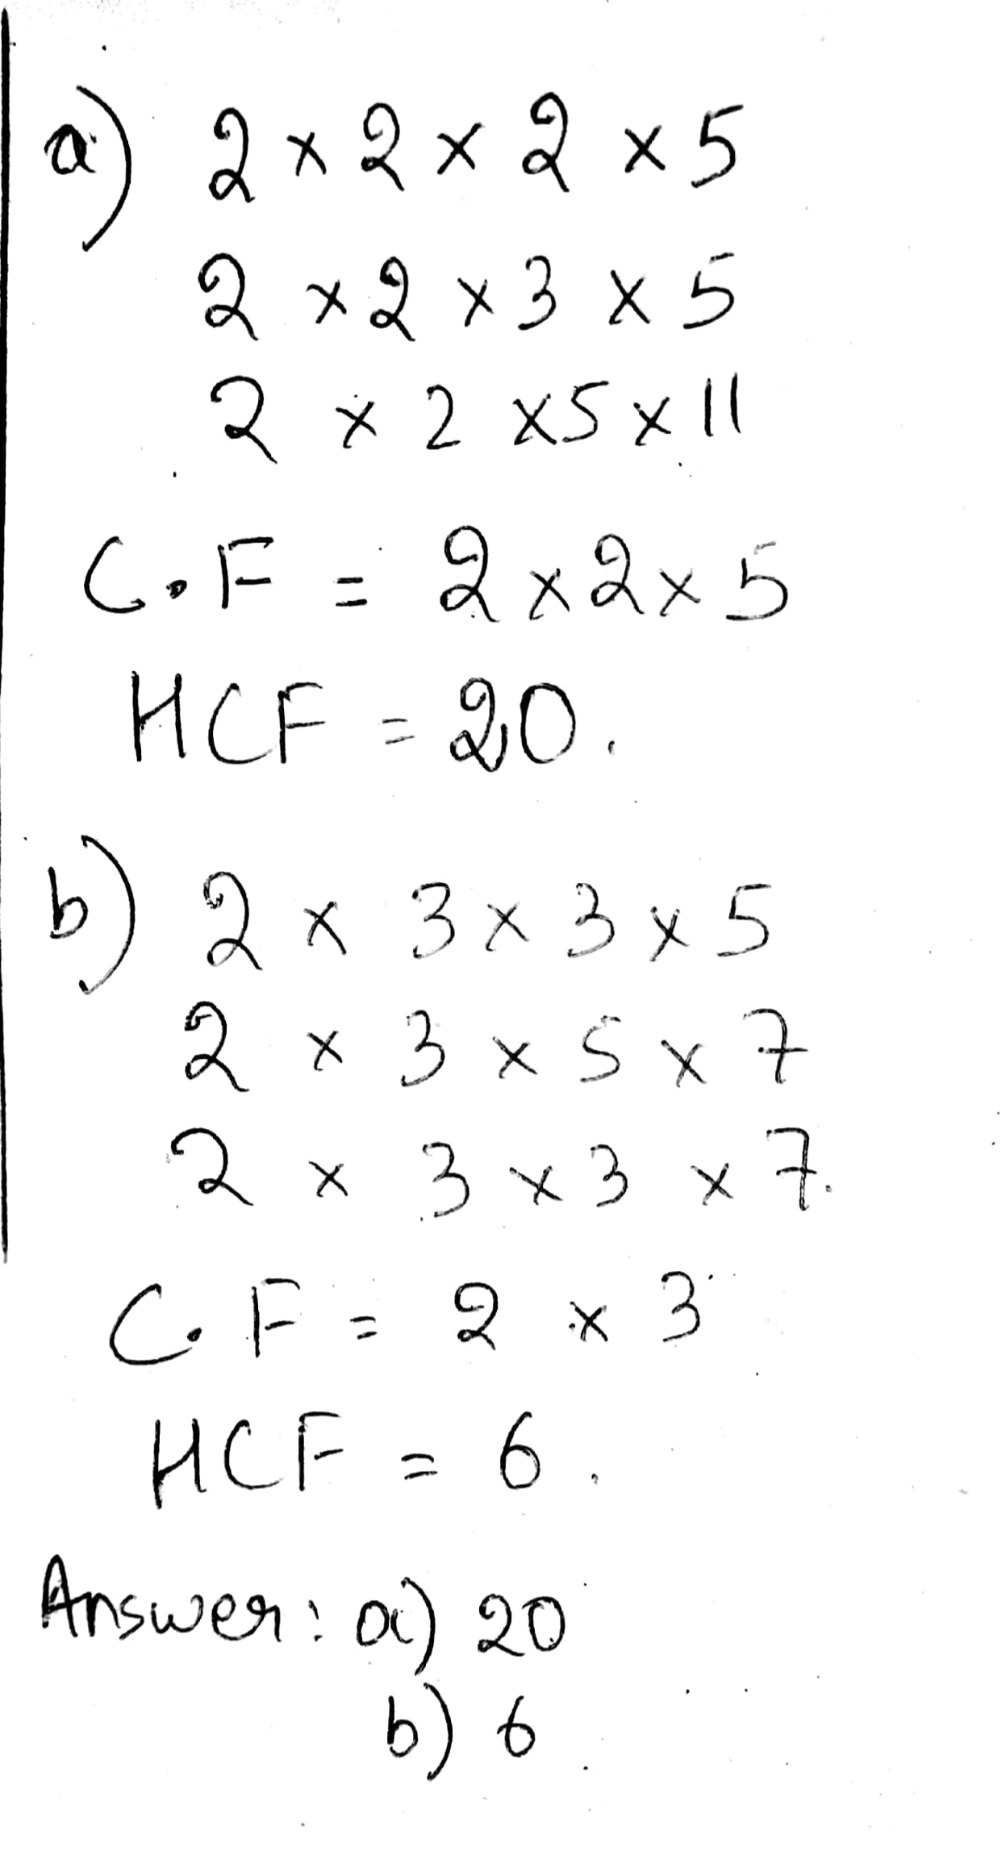 a) 2 × 2 × 2 × 5
2 × 2 × 3 × 5
2 × 2 × 5 × 11
C.F = 2 × 2 × 5
HCF = 20.
b) 2 × 3 × 3 × 5
2 × 3 × 5 × 7
2 × 3 × 3 × 7.
C.F = 2 × 3
HCF = 6.
Answer: a) 20
b) 6